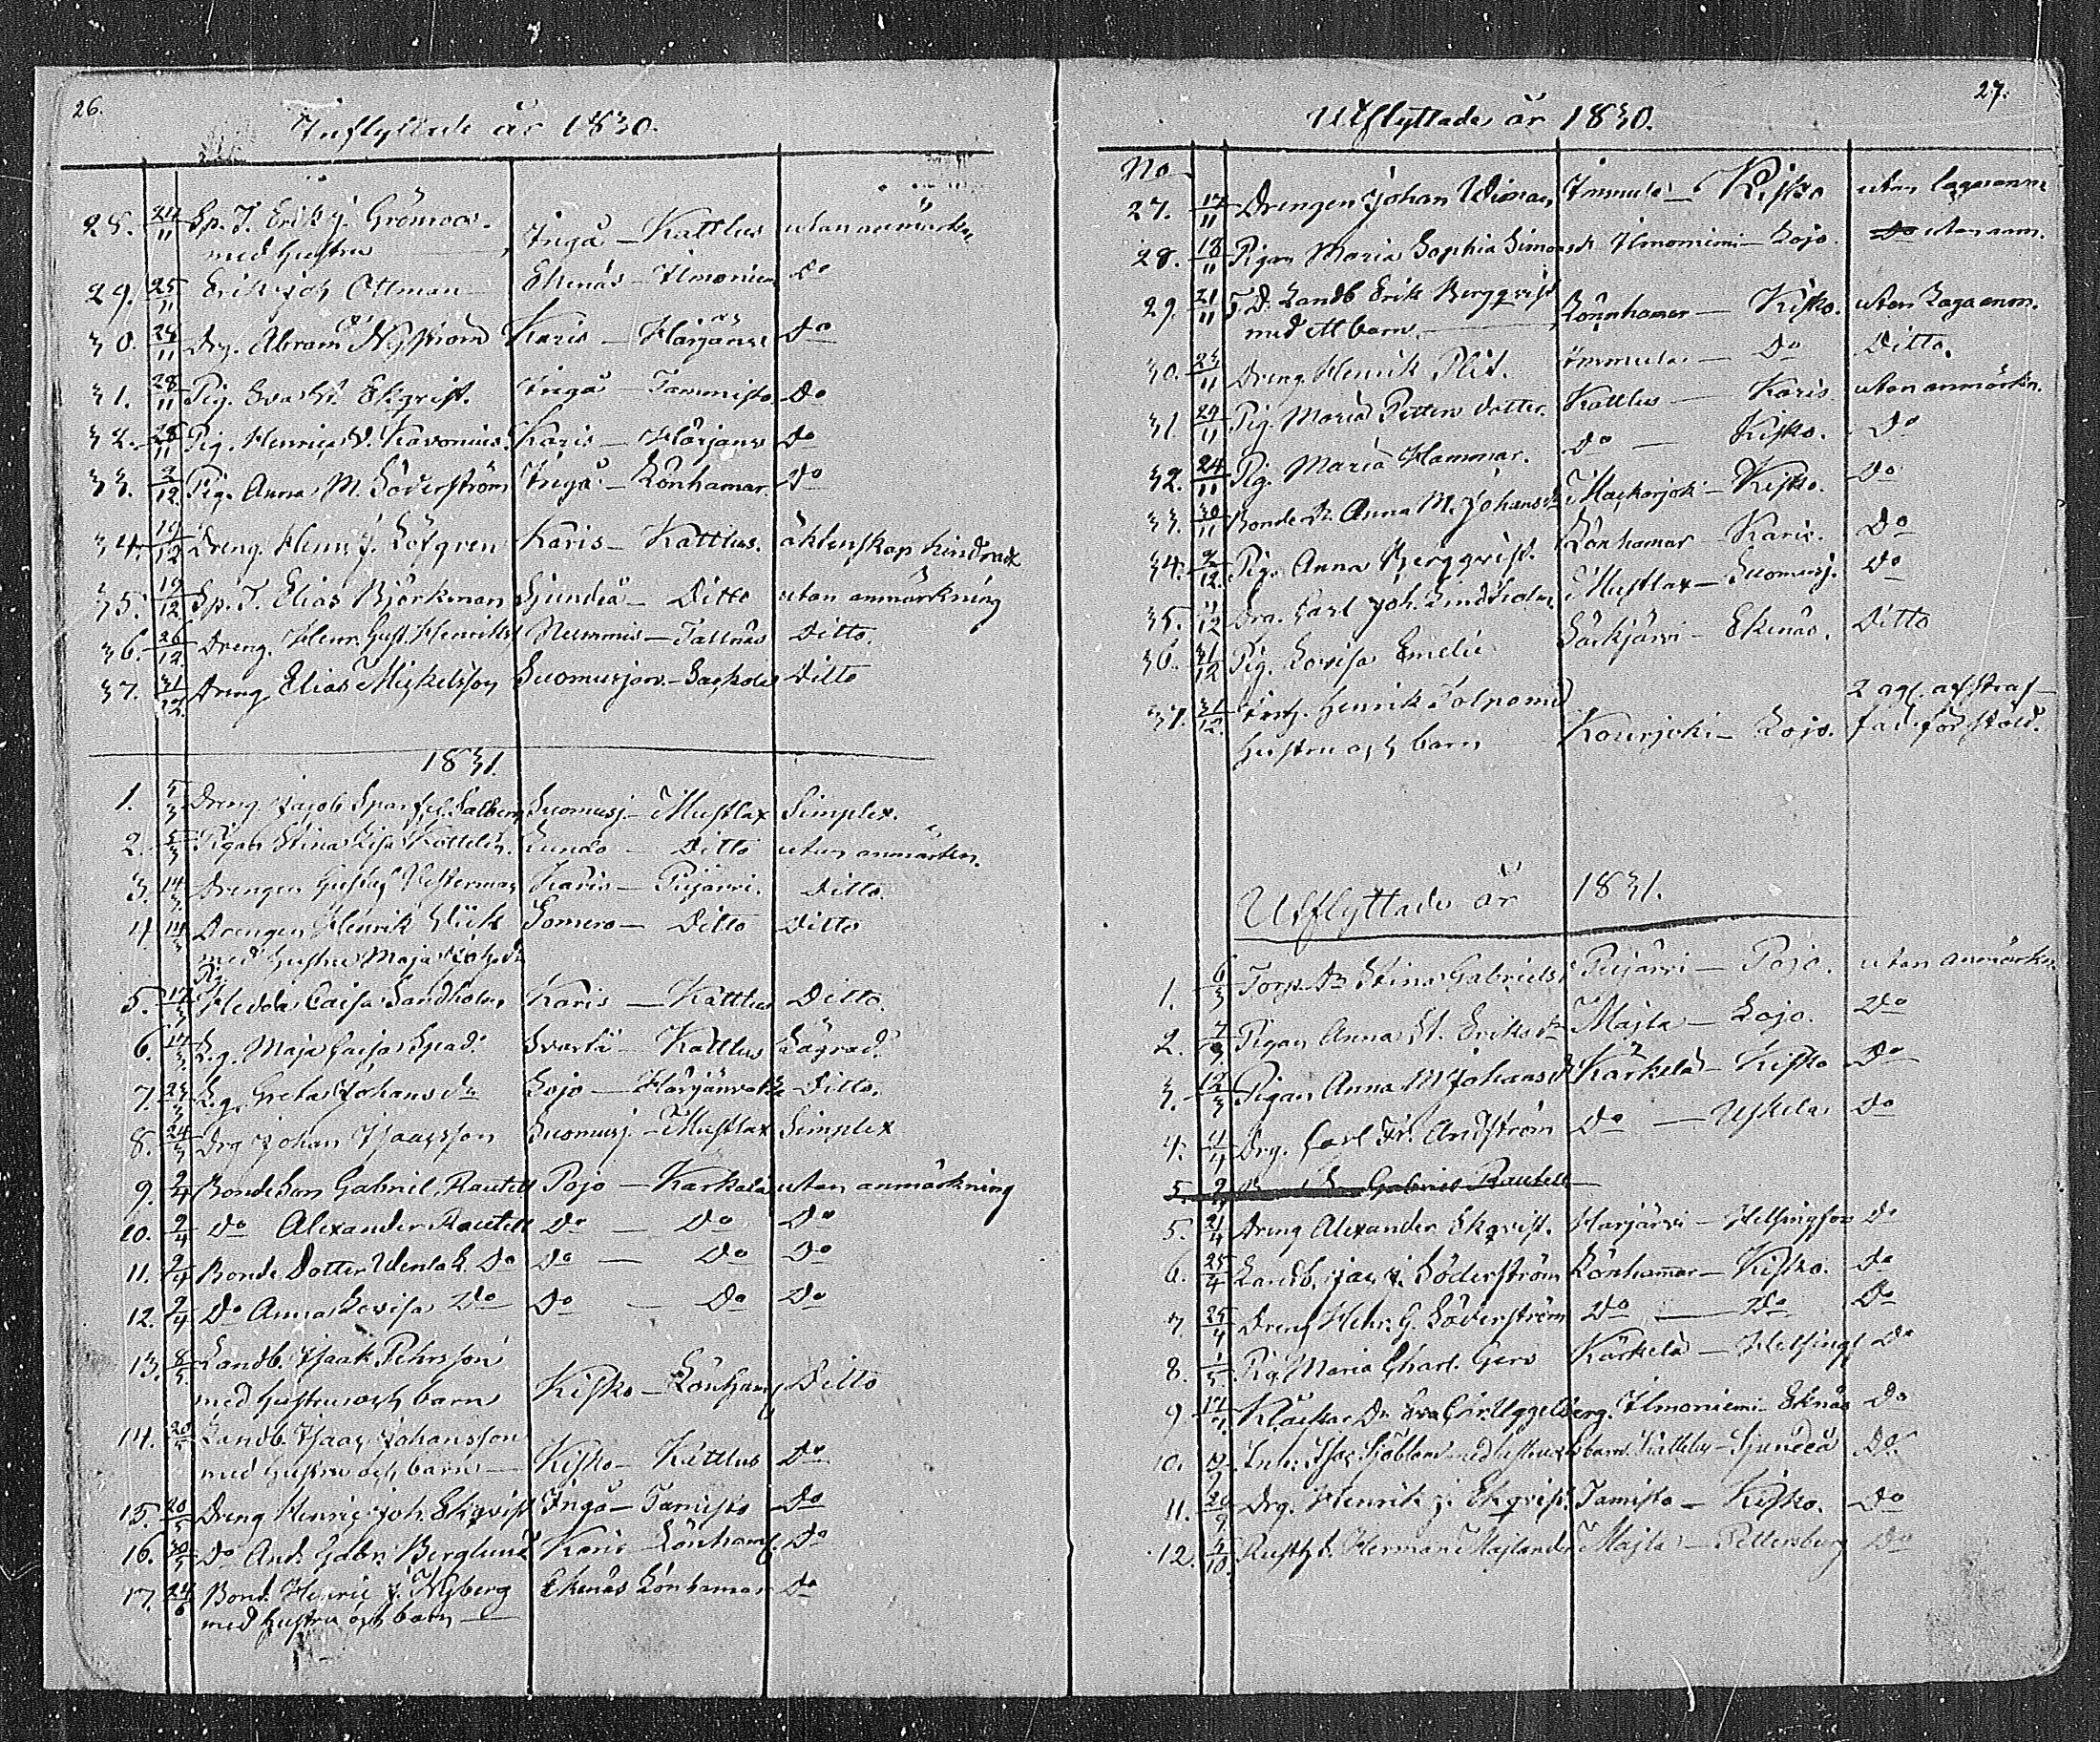 26.
Inflyttade år 1830.
28. 24/11 Sp. J. Erik J. Grönroos
med hustru — Ingå — Kattlus utan anmärkn.
29. 25/11 Erik Joh Ottman Ekenäs — Ilmoniemi Do
30. 28/11 Drg. Abram Nyström Karis — Härjänv Do
31. 28/11 Pig. Eva Ekqvist. Ingå — Tammisto Do
32. 28/11 Pig. Henrica Kavonius Karis — Härjänv Do
33. 2/12 Pig. Anna M. Söderström Ingå — Lönhamar. Do
34. 12 Dreng. Henr. J. Löfgren Karis — Kattlus. äktenskap hindrad
35. 19/12 Sp. J. Elias Björkman Sjundeå — Ditto utan anmärkning
36. 26/12 Dreng. Henr. Gust. Henriks Nummis — Tallnäs Ditto.
37. 31/12 Dreng Elias Mickelsson Suomusjärv. — Ditto
1831.
1. 5/3 Dreng Jacob Salberg Suomusj — Mustlax Simplex.
2. 5/3 Pigan Stina Lisa Kottelin. — Ditto utan anmärkn.
3. 14/3 Drengen Gustaf Vesterman Karis — Pujärvi. Ditto.
4. 14/3 Drengen Henrik Somero — Ditto Ditto
med hustru Maja
Pig.
5. 17/3 Hedda Caisa Sandholm Karis — Kattlus Ditto.
6. 3 Maja Caisa Spad. Svartå — Kattlus
7. 23/3 Greta Johansdr Lojo — Härjänvalta Ditto.
8. 24/3 Drg Johan Isaacsson Suomusj. — Mustlax Simplex
9. 2/4 Bonde Son Gabriel Rautell Pojo — Karkela utan anmärkning
10. 2/4 Do Alexander Rautell Do — Do Do
11. 2/4 Bonde Dotter Wenla L. Do Do — Do Do
12. 2/4 Do Anna Lovisa Do Do — Do Do
13. 8/5 Landb. Isaak Pehrsson
med hustru och barn Kisko — Lönham Ditto
14. 20/5 Landb. Isaac Johansson
med hustru och barn — Kisko — Kattlus Do
15. 20/5 Dreng Henric Joh. Ekqvist Ingå — Tamisto Do
16. 30/5 Do And. Gabr. Berglund Karis — Lönham. Do
17. 24/6 Bond. Henric J. Nyberg Ekenäs Lönhamar Do
med hustru och barn —
27.
Utflyttade år 1830.
No
27. 17/11 Drengen Johan Wiman Immula — Kisko utan lagaanm
28. 18/11 Pigan Maria Sophia Simonsdr Ilmoniemi — Lojo. Do utan anm.
29. 21/11 Landb Erik Bergqvist
med ett barn — Lönnhamar — Kisko. utan Lagaanm.
30. 23/11 Dreng. Henrik Plit. Immula — Do Ditto.
31 24/11 Pig. Maria Petters dotter. Kattlus — Karis utan anmärkn.
32. 24/11 Pig. Maria Hammar. Do — Kisko. Do
33. 30/11 Bonde dr. Anna M. Johansdr Mackarjoki — Kisko. Do
34. 2/12. Pig. Anna Bergqvist. Lönhamar — Karis. Do
35. 11/12 Drg. Carl Joh. Lindholm Mustlax — Suomusj. Do
36. 31/12 Pig. Lovisa Emelie Särkjärvi — Ekenäs. Ditto
37. 31/12. Henrik
hustru och barn Kourjoki — Lojo. 2 ag. afstraf-
fad för stöld.
Utflyttade år 1831.
1. 6/3 Torp. Dr Stina Gabrielsd Pujärvi — Pojo. utan anmärkn
2. 7/3 Pigan Anna St. Eriksdr Majla — Lojo. Do
3. 12/3 Pigan Anna M Johansd Kärkelä — Kisko Do
4. 4/4 Drg. Carl Fr. Andström Do — Uskela Do
5. 2/4 Gabriel Rautell
5. 21/4 Dreng Alexander Ekqvist. Harjärvi — Helsingfors Do
6. 25/4 Landb. Jac. J. Söderström Lönhamar — Kisko. Do
7. 25/4 Dreng Hehr. G. Söderström Do — Do Do
8. 1/5 Pig. Maria Charl. Gers Kärkelä — Helsingf Do
9 17/7 Klockar Dr Eva Car. Uggelberg. Ilmoniemi — Ekenäs Do
10. Isac Sjöblom med hustru & barn. Kattelus — Sjundeå Do.
11. 20/9. Drg. Henrik J. Ekqvist. Tamisto — Kisko. Do
12. 4/10. Rusth. Herman Majlander Majla — Pettersburg Do